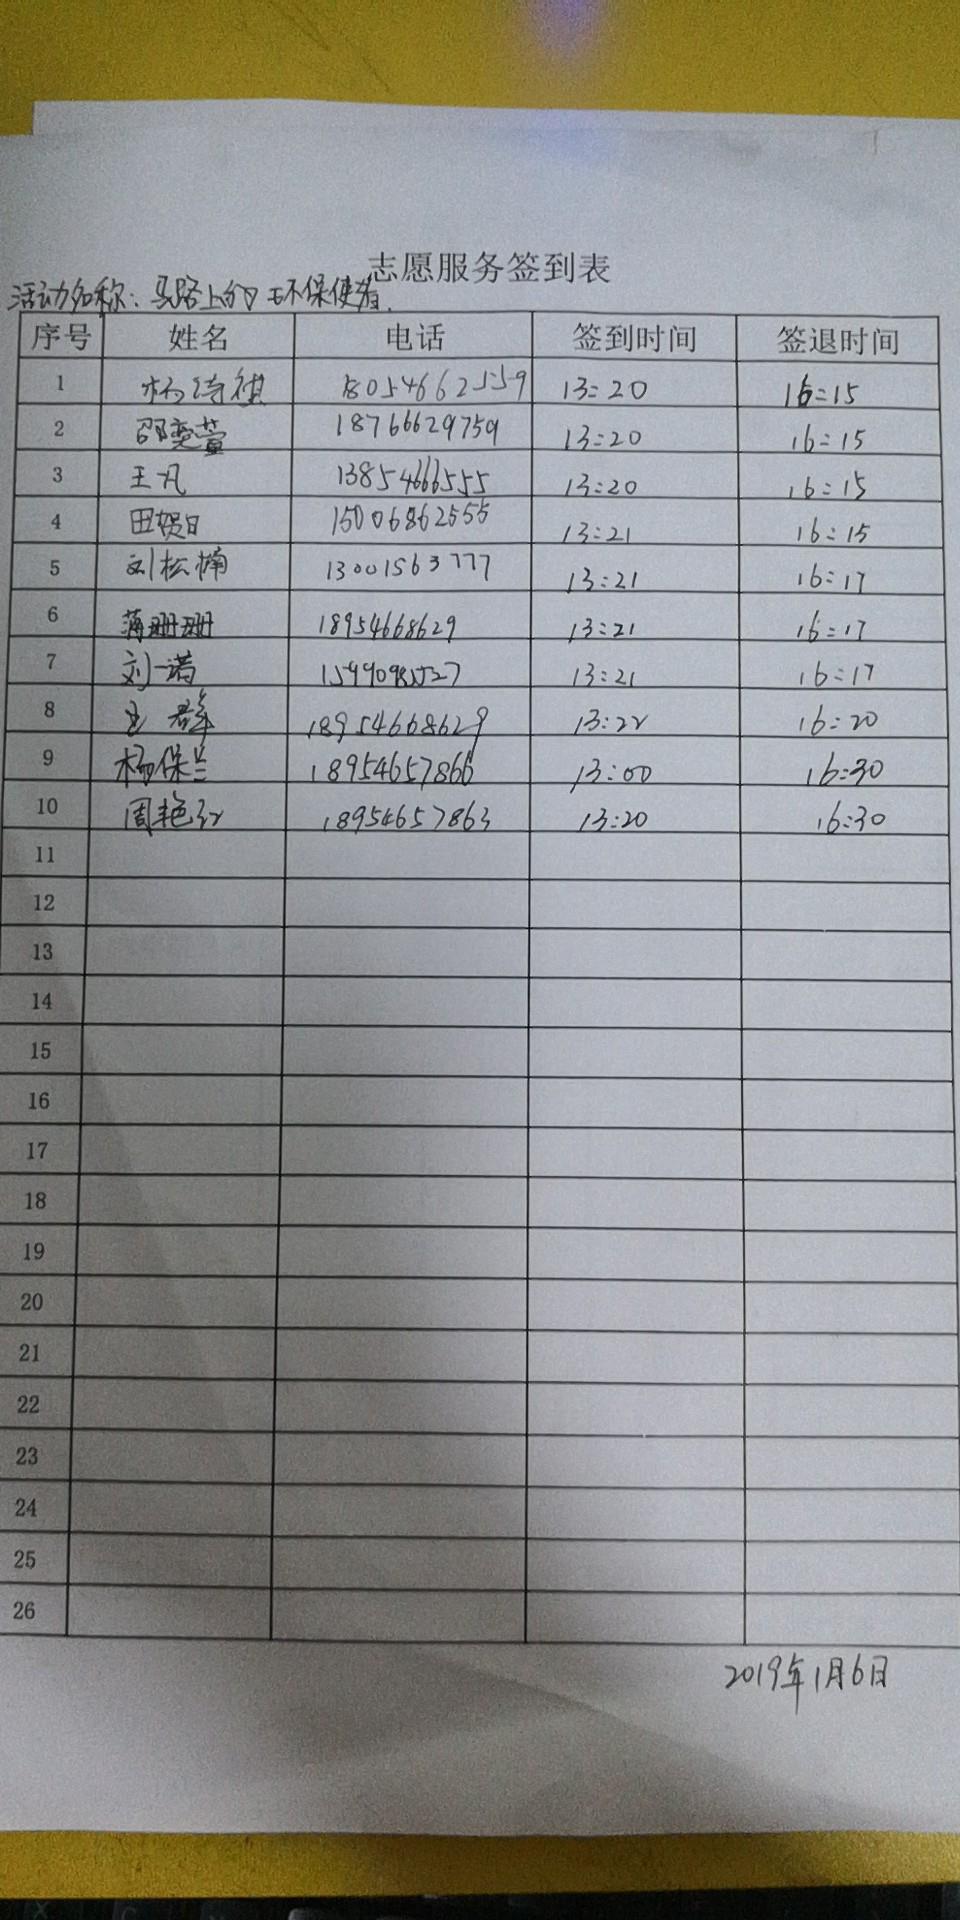 志愿服务签到表
活动名称：马路上的环保使者.
序号 姓名 电话 签到时间 签退时间
1 杨诗祺 18054662559 13:20 16:15
2 邵奕萱 18766629759 13:20 16:15
3 王凡 13854666555 13:20 16:15
4 田贺日 15006862555 13:21 16:15
5 刘松楠 13001563777 13:21 16:17
6 蒋珊珊 18954668629 13:21 16:17
7 刘一诺 13:21 16:17
8 王群 18954668629 13:22 16:20
9 杨保兰 18954657866 13:00 16:30
10 周艳红 18954657863 13:20 16:30
11
12
13
14
15
16
17
18
19
20
21
22
23
24
25
26
2019年1月6日